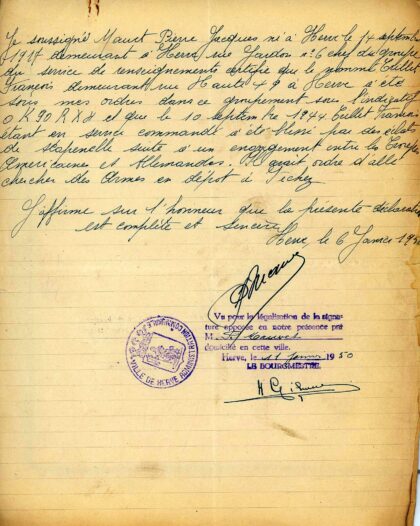 Je soussigné Mauet Pierre Jacques né à Herve le 14 septembre
1917 demeurant à Herve, rue Jardon n° 6 chef du groupe
du service de renseignements certifie que le nommé Tullet
François demeurant rue Haute 49 à Herve a été
sous mes ordres dans ce groupement sous l'indicatif
OK90RX8 et que le 10 septembre 1944 Tullet François
étant en service commandé a été blessé par des éclats
de schrapnelle suite à un engagement entre les troupes
Américaines et Allemandes. Il avait ordre d'aller
chercher des Armes en dépôt à
J'affirme sur l'honneur que la présente déclaration
est complète et sincère
Herve le 6 Janvier
Vu pour la légalisation de la signa-
ture apposée en notre présence par
M.
domicilié en cette ville.
Herve, le 11 Janvier 1950
LE BOURGMESTRE,
VILLE DE HERVE ADMINISTRATION COMMUNALE